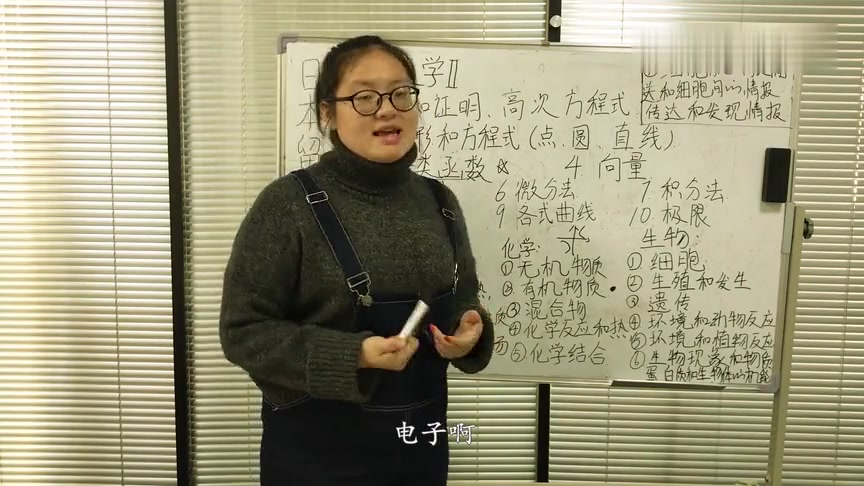 日 学Ⅱ
本 和证明、高次方程式
留 形和方程式(点、圆、直线)
类函数☆ 4 向量
6 微分法 7 积分法
9 各式曲线 10 极限
送和细胞间的情报
传达和发现情报
化学:
①无机物质
②有机物质
③混合物
④化学反应和热
⑤化学结合
生物:
①细胞
②生殖和发生
③遗传
④环境和动物反应
⑤环境和植物反应
⑥生物现象和物质
蛋白质和生物体的机能
热
质
场
电子啊